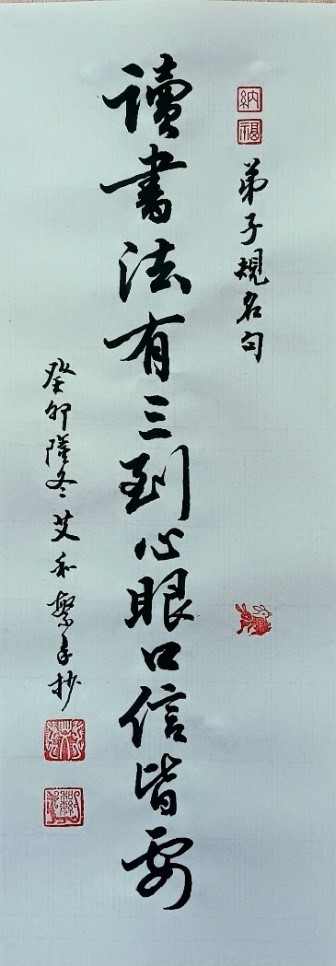 纳
福
弟子规名句
讀書法有三到心眼口信皆要
癸卯隆冬艾和繁手抄